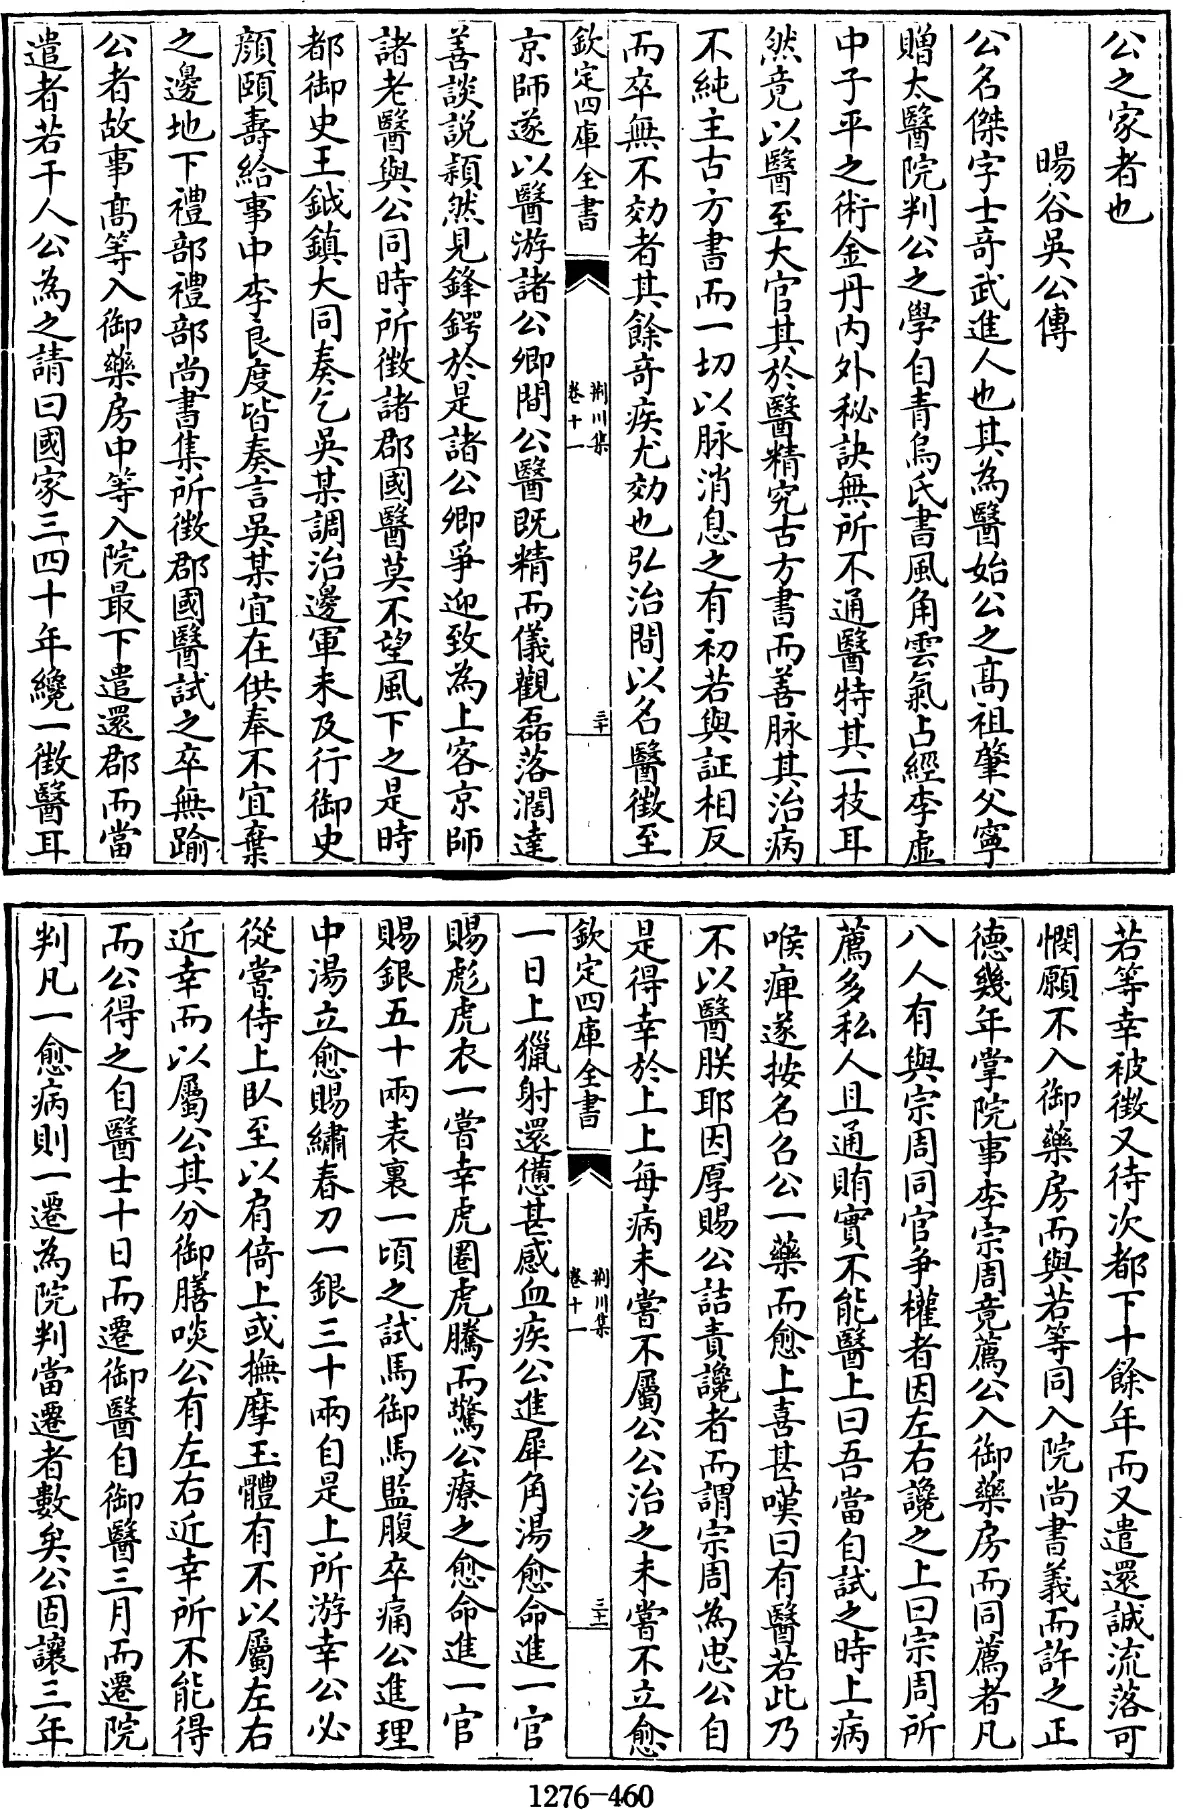 公之家者也
暘谷吳公傳
公名傑字士奇武進人也其為醫始公之髙祖肇父寧
贈太醫院判公之學自青烏氏書風角雲氣占經李虛
中子平之術金丹内外秘訣無所不通醫特其一技耳
然竟以醫至大官其於醫精究古方書而善脉其治病
不純主古方書而一切以脉消息之有初若與証相反
而卒無不効者其餘奇疾尤効也弘治間以名醫徵至
欽定四庫全書
荆川集
卷十一
三十
京師遂以醫游諸公卿間公醫既精而儀觀磊落濶達
善談說穎然見鋒鍔於是諸公卿爭迎致為上客京師
諸老醫與公同時所徵諸郡國醫莫不望風下之是時
都御史王鉞鎮大同奏乞吳某調治邊軍未及行御史
顔頤壽給事中李良度皆奏言吳某宜在供奉不宜棄
之邊地下禮部禮部尚書集所徵郡國醫試之卒無踰
公者故事髙等入御藥房中等入院最下遣還郡而當
遣者若干人公為之請曰國家三四十年纔一徵醫耳
若等幸被徵又待次都下十餘年而又遣還誠流落可
憫願不入御藥房而與若等同入院尚書義而許之正
德幾年掌院事李宗周竟薦公入御藥房而同薦者凡
八人有與宗周同官爭權者因左右讒之上曰宗周所
薦多私人且通賄實不能醫上曰吾當自試之時上病
喉痺遂按名召公一藥而愈上喜甚嘆曰有醫若此乃
不以醫朕耶因厚賜公詰責讒者而謂宗周為忠公自
是得幸於上上每病未嘗不屬公公治之未嘗不立愈
欽定四庫全書
荆川集
卷十一
三十一
一日上獵射還憊甚感血疾公進犀角湯愈命進一官
賜彪虎衣一嘗幸虎圈虎騰而驚公療之愈命進一官
賜銀五十兩表裏一頃之試馬御馬監腹卒痛公進理
中湯立愈賜繡春刀一銀三十兩自是上所游幸公必
從嘗侍上臥至以肩倚上或撫摩玉體有不以屬左右
近幸而以屬公其分御膳啖公有左右近幸所不能得
而公得之自醫士十日而遷御醫自御醫三月而遷院
判凡一愈病則一遷為院判當遷者數矣公固讓三年
1276-460